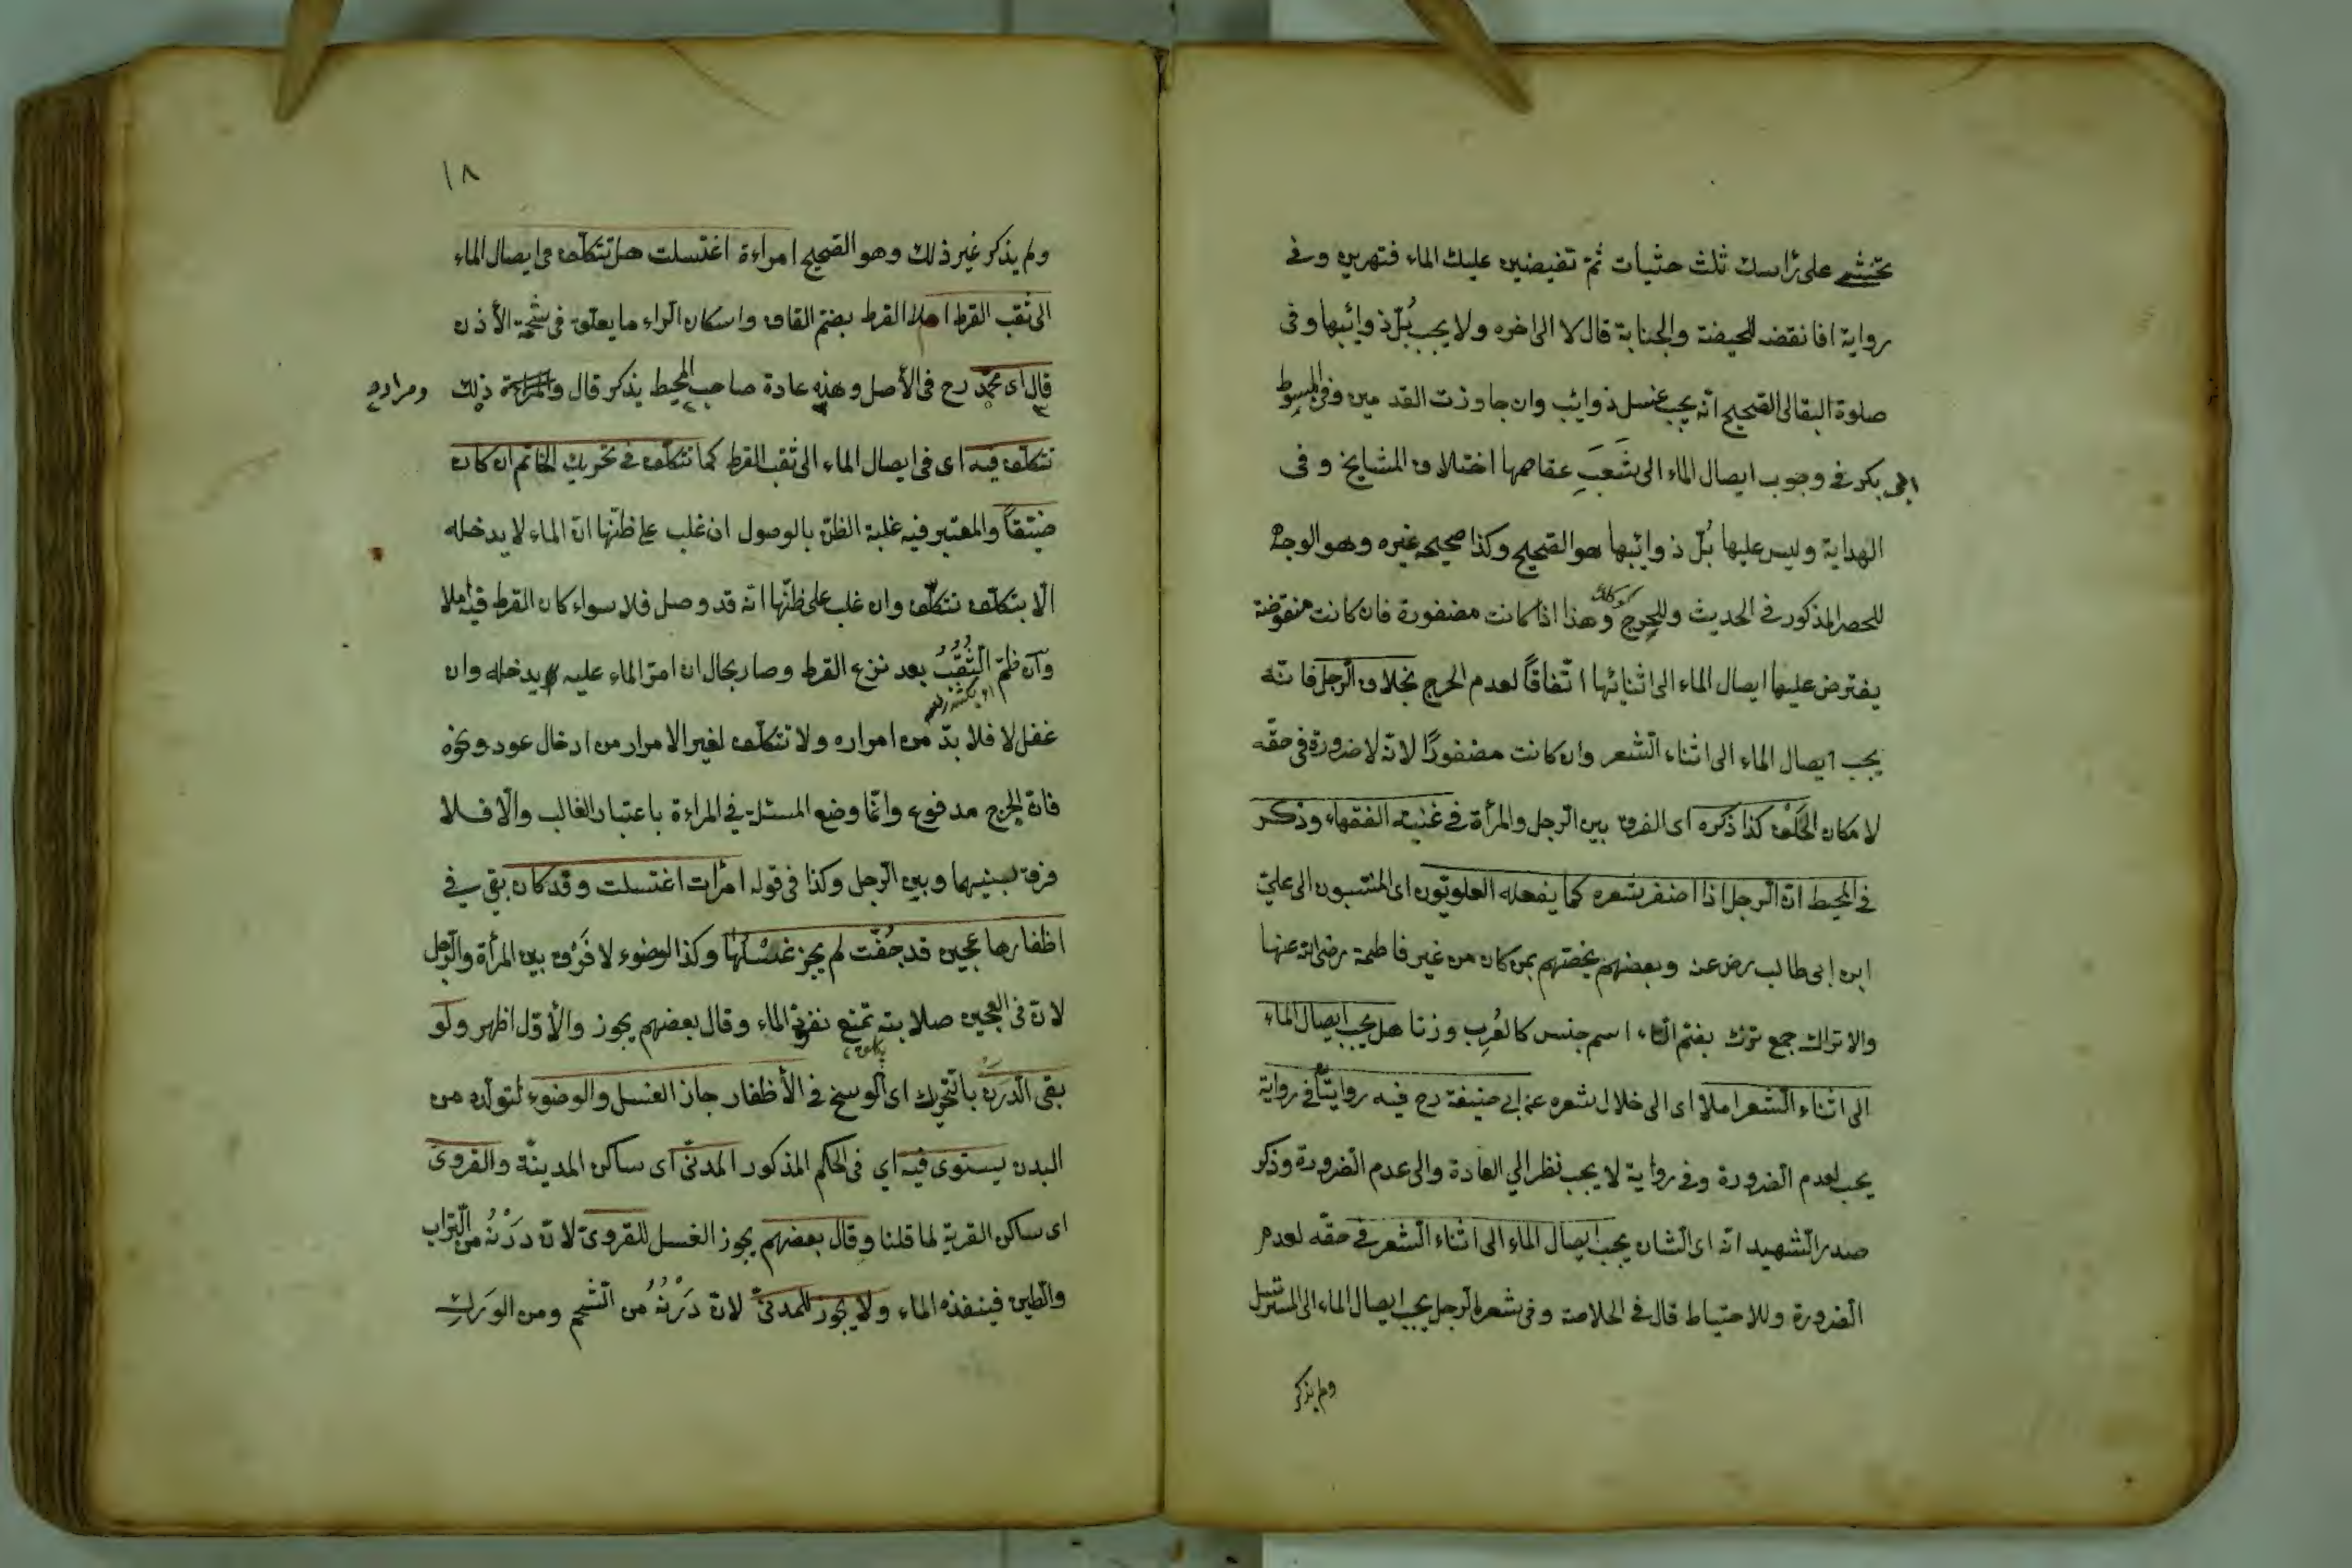 تحتشى على رأسك ثلث حثيات ثم تفيضين عليك الماء فتهرين وفى
رواية افانقضه للحيضة والجنابة قال لا الى اخره ولا يجب بُلّ ذوائبها وفى
صلوة البقالى الصحيح انه يجب غسل ذوائب وان جاوزت القدمين وفى المبسوط
بكر فى وجوب ايصال الماء الى شَعَبِ عقاصها اختلاف المشايخ وفى
الهداية وليس عليها بُلّ ذوائبها هو الصحيح وكذا صححه غيره وهو الوجه
للحصر المذكور فى الحديث وللحرج وهذا اذا كانت مضفورة فان كانت منقوضة
يفترض عليها ايصال الماء الى اثنائها اتّفاقاً لعدم الحرج بخلاف الرجل فانّه
يجب ايصال الماء الى اثناء الشعر وان كانت مضفورًا لانّه لا ضرورة فى حقّه
لامكان الحَلْق كذا ذكره اى الفرق بين الرجل والمرأة فى غنية الفقهاء وذكر
فى المحيط انّ الرجل اذا اضفر شعره كما يفعله العلويّون اى المنتسبون الى علىّ
ابن ابى طالب رض عنه وبعضهم يخصّهم بمن كان من غير فاطمة رضى الله عنها
والاتراك جمع ترك بضم التاء اسم جنس كالعُرب وزنا هل يجب ايصال الماء
الى اثناء الشعر املا اى الى خلال شعره عن ابى حنيفة رح فيه روايتان فى رواية
يجب لعدم الضرورة وفى رواية لا يجب نظرا الى العادة والى عدم الضرورة وذكر
صدر الشهيد انّه اى الشان يجب ايصال الماء الى اثناء الشعر فى حقّه لعدم
الضرورة وللاحتياط قال فى الخلاصة وفى شعر الرجل يجب ايصال الماء الى المسترسل
ولم يذكر
١٨
ولم يذكر غير ذلك وهو الصحيح امراءة اغتسلت هل تتكلّف فى ايصال الماء
الى ثقب القرط املا القرط بضمّ القاف واسكان الراء ما يعلّق فى شحمة الأذن
قال اى محمّد رح فى الأصل وهذه عادة صاحب المحيط يذكر قال ذلك
تتكلّف فيه اى فى ايصال الماء الى ثقب القرط كما تتكلّف فى تحريك الخاتم ان كان
ضيّقاً والمعتبر فيه غلبة الظنّ بالوصول ان غلب على ظنّها انّ الماء لا يدخله
الّا بتكلّف تتكلّف وان غلب على ظنّها انّه قد وصل فلا سواء كان القرط فيه املا
وان ضمّ الثّقْبُ بعد نزع القرط وصار بحال ان امرّ الماء عليه يدخله وان
غفل لا فلا بدّ من امراره ولا تتكلّف لغير الامرار من ادخال عود ونحوه
فانّ الحرج مدفوع وانّما وضع المسئلة فى المراءة باعتبار الغالب والّا فلا
فرق بينها وبين الرجل وكذا فى قوله امرأت اغتسلت وقد كان بقى فى
اظفارها عجين قد جُفّت لم يجز غسْلُها وكذا الوضوء لا فَرْق بين المرأة والرجل
لانّ فى العجين صلابته تمنع نفوذ الماء وقال بعضهم يجوز والأوّل اظهر ولو
بقى الدّرَن بالتّحرك اى الوسخ فى الأظفار جاز الغسل والوضوء لتولّده من
البدن يستوى فيه اي فى الحكم المذكور المدنىّ اى ساكن المدينة والقروىّ
اى ساكن القرية لما قلنا وقال بعضهم يجوز الغسل للقروىّ لانّ دَرْنُه من التّراب
والطين فينفذه الماء ولا يجوز للمدنىّ لانّ دَرْنُهُ من الشّحم ومن الوَرك